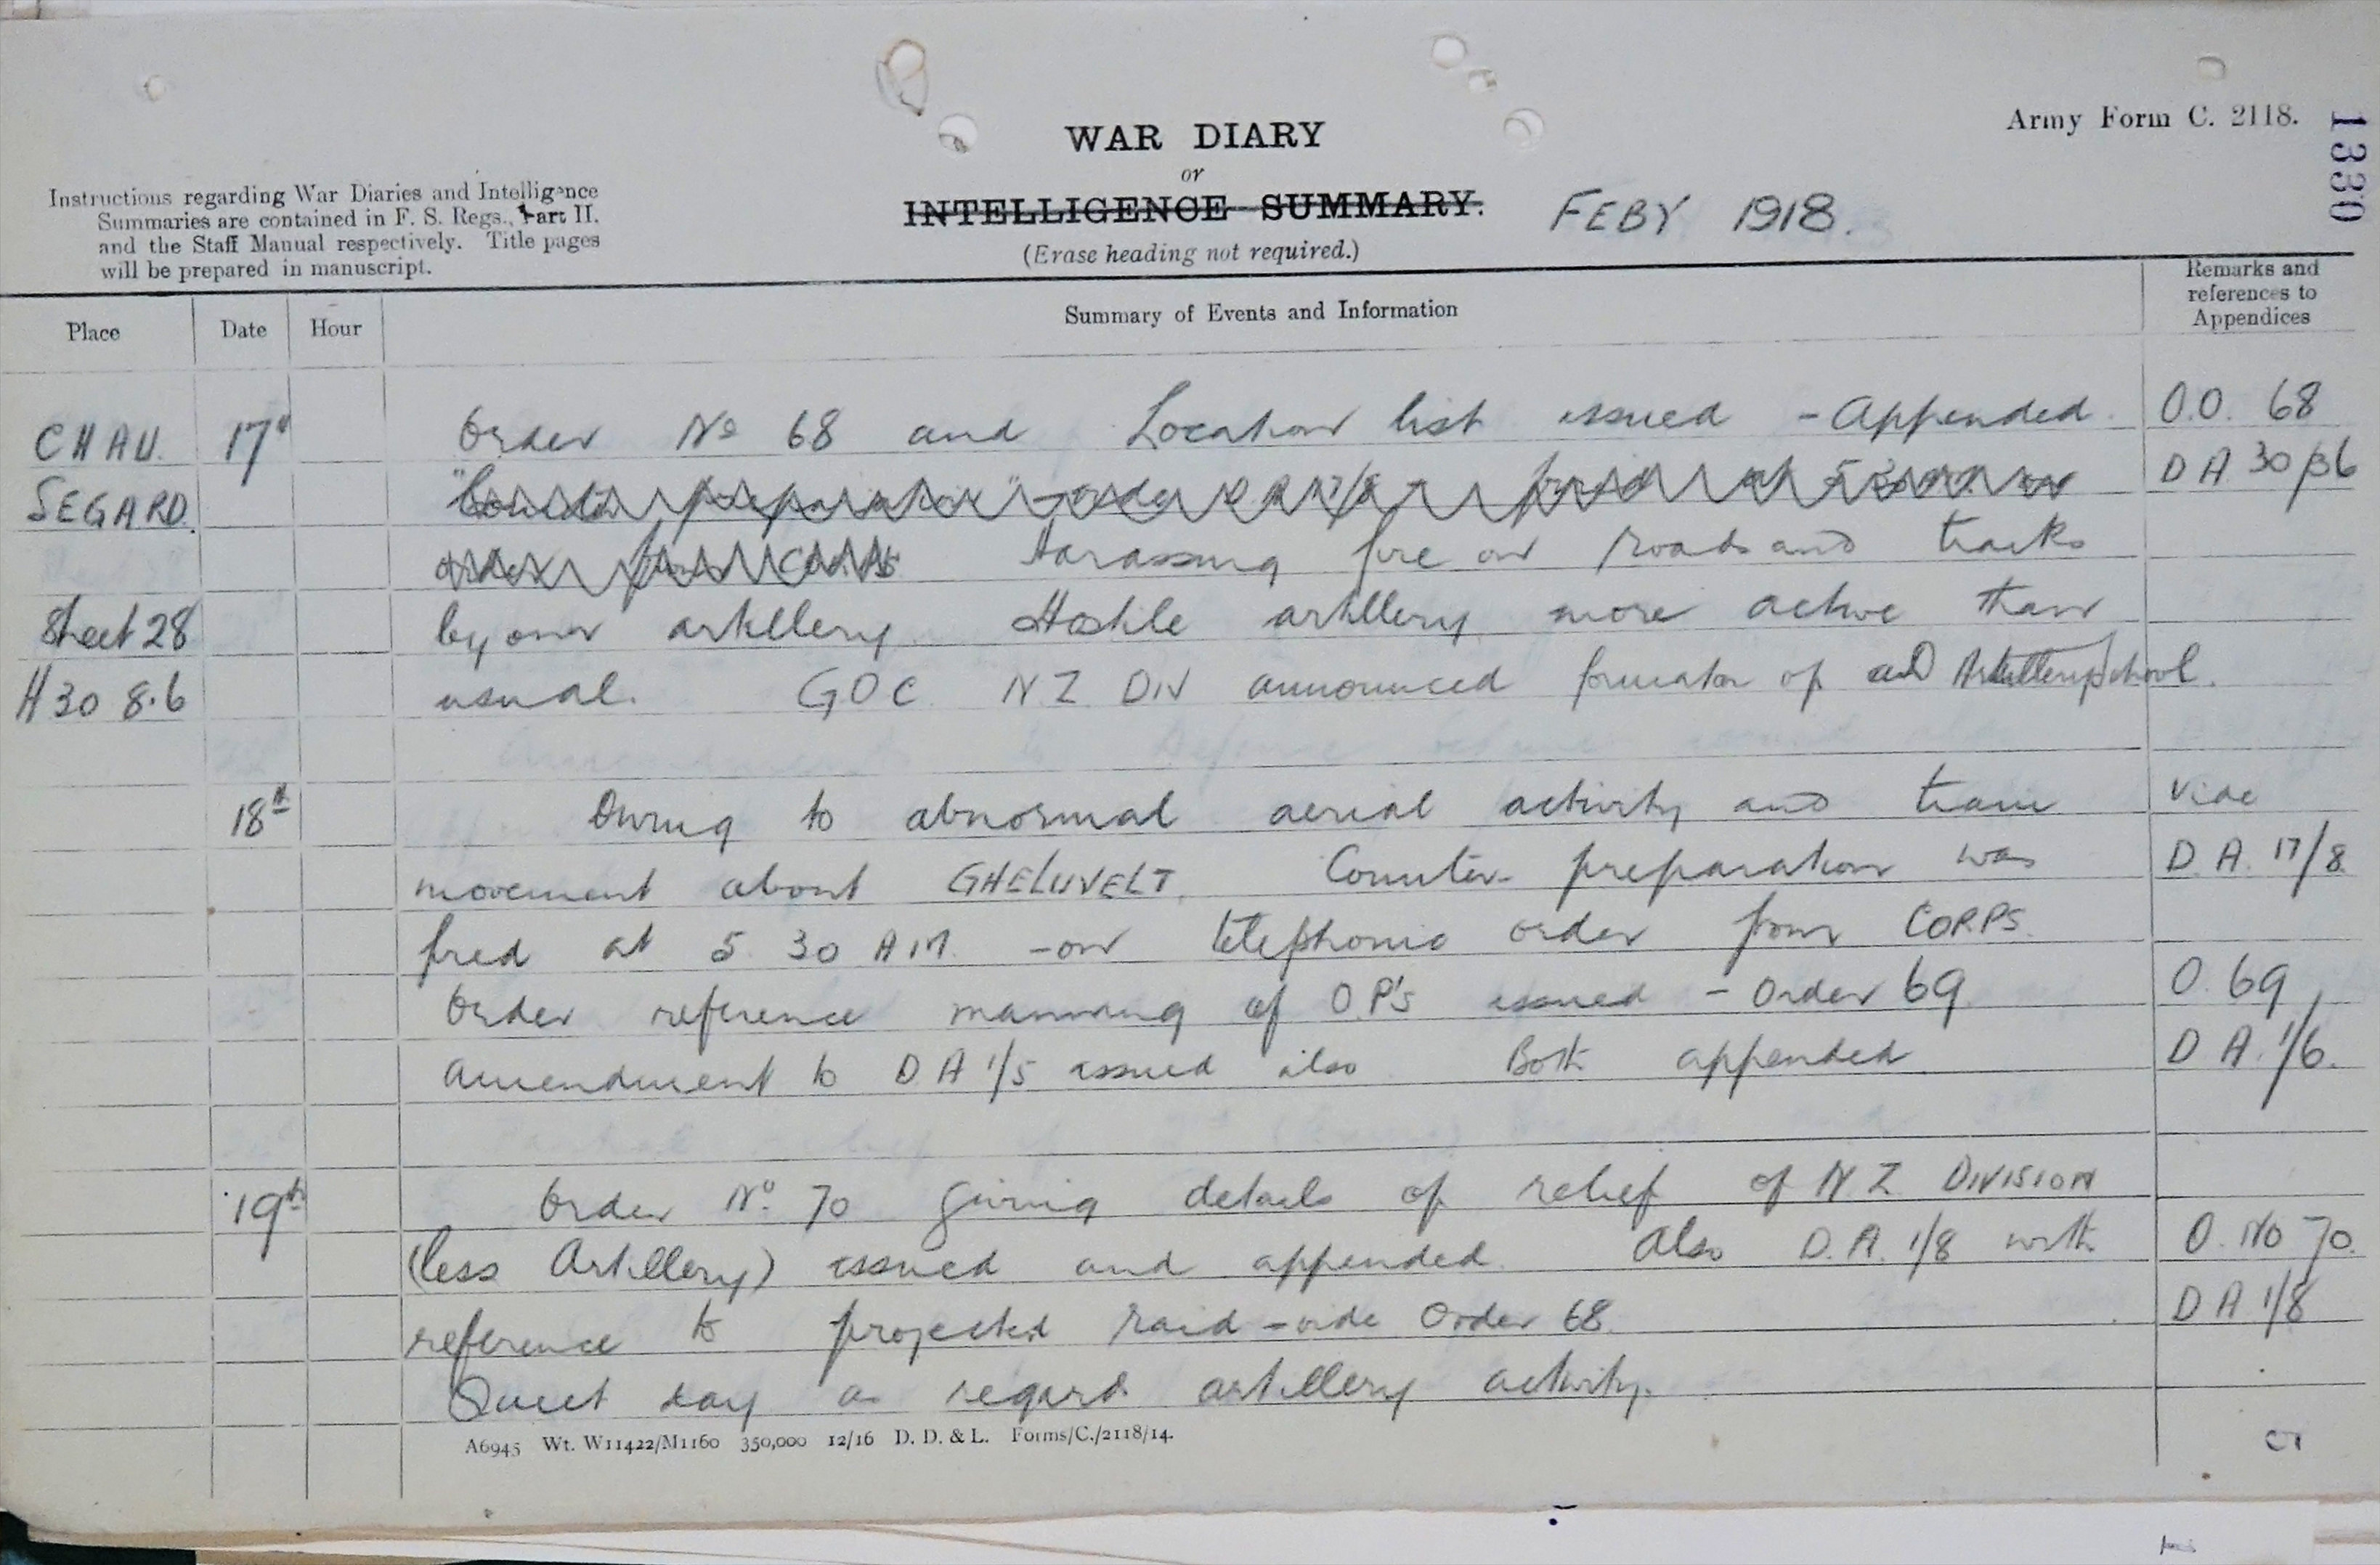 Army Form C. 2118.
1330
WAR DIARY
or
INTELLIGENCE SUMMARY.
(Erase heading not required.)
FEBY 1918.
Instructions regarding War Diaries and Intelligence
Summaries are contained in F. S. Regs., Part II.
and the Staff Manual respectively. Title pages
will be prepared in manuscript.
Place Date Hour Summary of Events and Information Remarks and references to Appendices
CHAU. 17th Order No 68 and Location list issued - Appended. O.O. 68
SEGARD. "Counter preparation" order D.A. 17/8 fired at 5.30 A.M. on DA 30/36
order from CORPS Harassing fire on roads and tracks
Sheet 28 by our artillery. Hostile artillery more active than
H 30 8.6 usual. GOC N.Z. DIV announced formation of Artillery School.
18th Owing to abnormal aerial activity and train Vide
movement about GHELUVELT. Counter-preparation was D.A. 17/8
fired at 5.30 A.M. - on telephonic order from CORPS.
Order reference manning of O.P's issued - Order 69 O. 69
amendment to D.A 1/5 issued also Both appended D A. 1/6.
19th Order No. 70 giving details of relief of N Z DIVISION
(less Artillery) issued and appended. Also D.A. 1/8 with O. No 70.
reference to projected raid - vide Order 68. D A 1/8
Quiet day as regards artillery activity.
A6945 Wt. W11422/M1160 350,000 12/16 D. D. & L. Forms/C./2118/14.